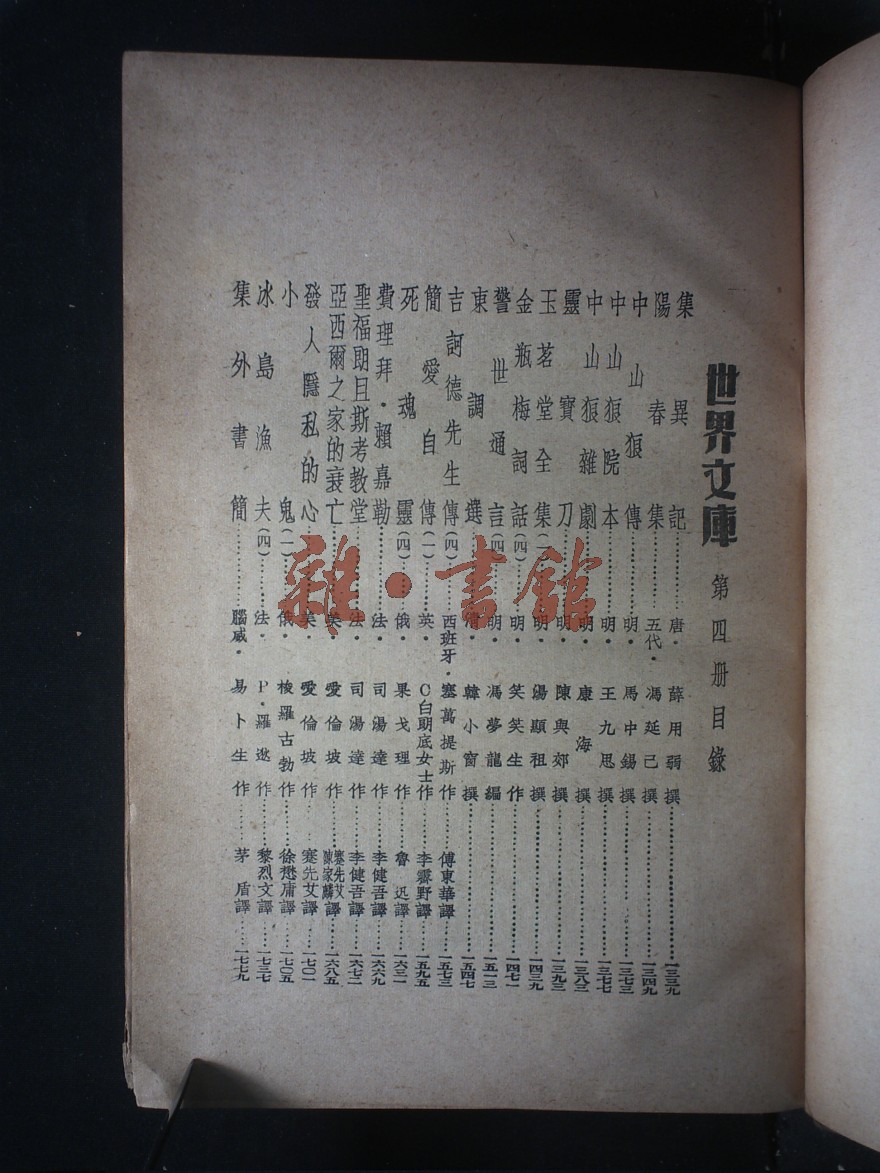 世界文庫 第四册目錄
集異記………唐·薛用弱撰………一三三九
陽春集………五代·馮延己撰………一三四九
中山狼傳………明·馬中錫撰………一三七三
中山狼院本………明·王九思撰………一三七七
中山狼雜劇………明·康海撰………一三八三
靈寶刀………明·陳與郊撰………一三九三
玉茗堂全集(一)………明·湯顯祖撰………一四三九
金瓶梅詞話(四)………明·笑笑生作………一四七一
警世通言(四)………明·馮夢龍編………一五一三
東調選………清·韓小窗撰………一五四七
吉訶德先生傳(四)………西班牙·塞萬提斯作………傅東華譯………一五七三
簡愛自傳(一)………英·C白朗底女士作………李霽野譯………一五九五
死魂靈(四)………俄·果戈理作………魯迅譯………一六三一
費理拜·賴嘉勒………法·司湯達作………李健吾譯………一六六九
聖福朗且斯考教堂………法·司湯達作………李健吾譯………一六七二
亞西爾之家的衰亡………美·愛倫坡作………蹇先艾陳家麟譯………一六八五
發人隱私的心………美·愛倫坡作………蹇先艾譯………一七〇一
小鬼(一)………俄·梭羅古勃作………徐懋庸譯………一七〇五
冰島漁夫(四)………法·P·羅逖作………黎烈文譯………一七三七
集外書簡………腦威·易卜生作………茅盾譯………一七七九
雜·書館